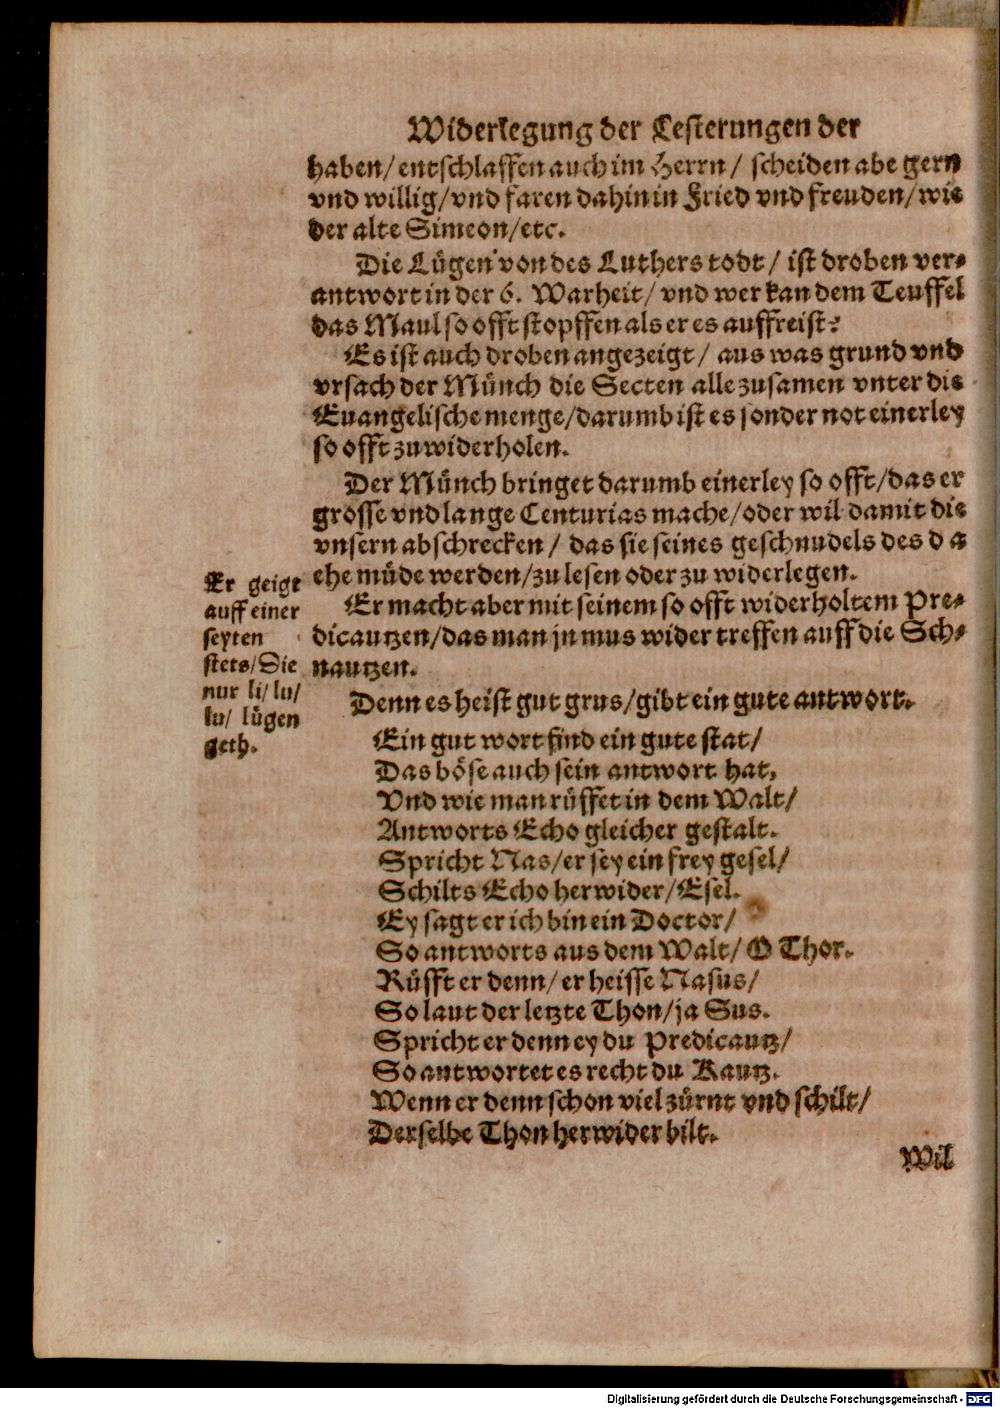 Widerlegung der Lesterungen der
haben/ entschlaffen auch im Herrn/ scheiden abe gern
vnd willig/ vnd faren dahin in Fried vnd freuden/ wie
der alte Simeon/ etc.
Die Lügen von des Luthers todt/ ist droben ver-
antwort in der 6. Warheit/ vnd wer kan dem Teuffel
das Maul so offt stopffen als er es auffreist?
Es ist auch droben angezeigt/ aus was grund vnd
vrsach der Münch die Secten alle zusamen vnter die
Euangelische menge/ darumb ist es sonder not einerley
so offt zu widerholen.
Der Münch bringet darumb einerley so offt/ das er
grosse vnd lange Centurias mache/ oder wil damit die
vnsern abschrecken/ das sie seines geschnudels des da
ehe müde werden/ zu lesen oder zu widerlegen.
Er macht aber mit seinem so offt widerholtem Pre-
dicautzen/ das man jn mus wider treffen auff die Sch-
nautzen.
Er geigt
auff einer
seyten
stets/ Sie
nur li/ lu/
lu/ lügen
geth.
Denn es heist gut grus/ gibt ein gute antwort.
Ein gut wort find ein gute stat/
Das böse auch sein antwort hat,
Vnd wie man rüffet in dem Walt/
Antworts Echo gleicher gestalt.
Spricht Nas/ er sey ein frey gesel/
Schilts Echo herwider/ Esel.
Ey sagt er ich bin ein Doctor/
So antworts aus dem Walt/ O Thor.
Rüfft er denn/ er heisse Nasus/
So laut der letzte Thon/ ja Sus.
Spricht er denn ey du Predicautz/
So antwortet es recht du Kautz.
Wenn er denn schon viel zürnt vnd schilt/
Derselbe Thon herwider bilt.
Wil
Digitalisierung gefördert durch die Deutsche Forschungsgemeinschaft - DFG